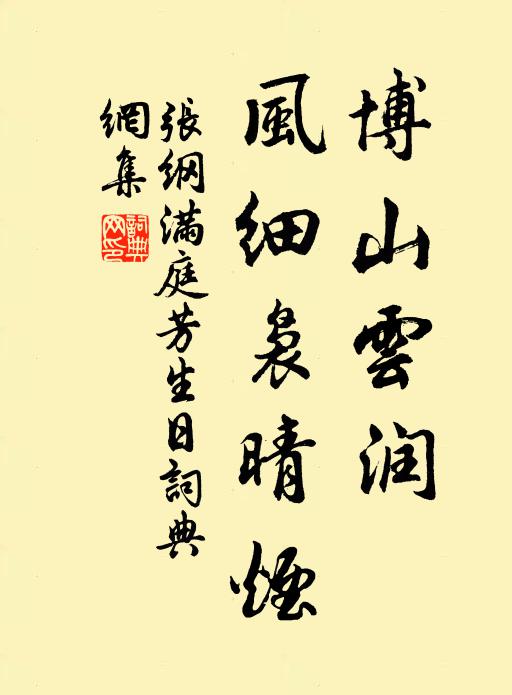 博山雲润
風細裊晴煙
張纲滿庭芳生日詞典
網集
詞典
网印